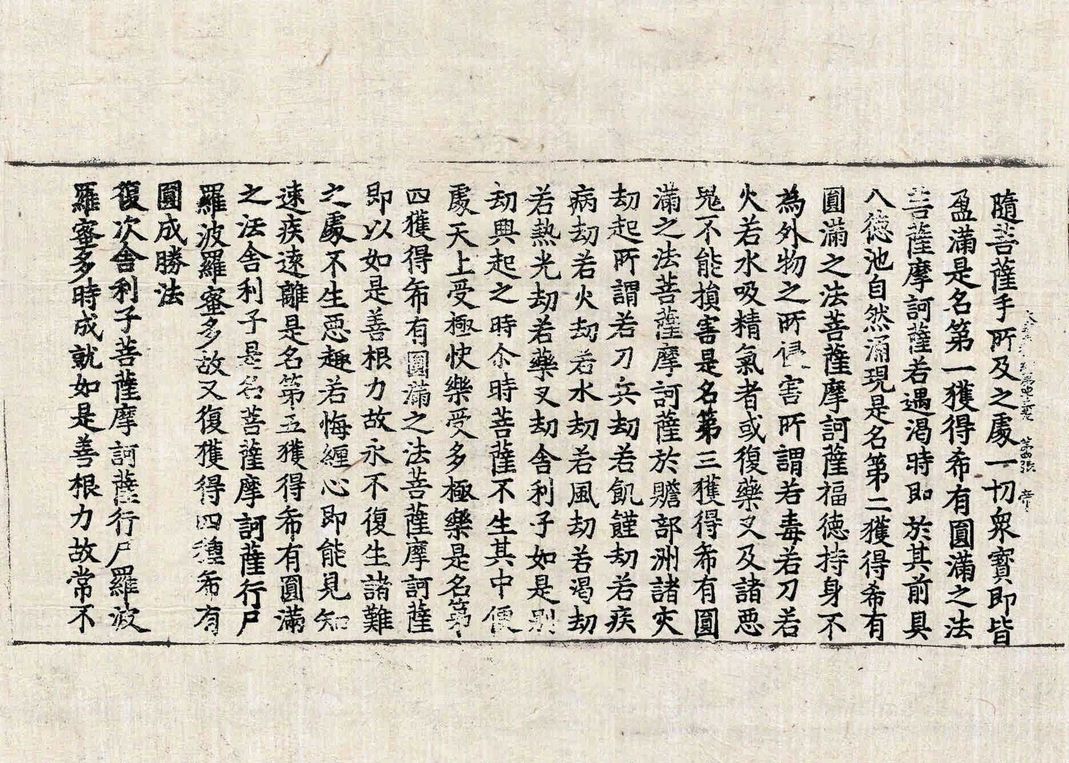 隨菩薩手所及之處一切衆寶即皆
盈滿是名第一獲得希有圓滿之法
菩薩摩訶薩若遇渴時即於其前具
八德池自然涌現是名第二獲得希有
圓滿之法菩薩摩訶薩福德持身不
為外物之所侵害所謂若毒若刀若
火若水吸精氣者或復藥叉及諸惡
鬼不能損害是名第三獲得希有圓
滿之法菩薩摩訶薩於贍部洲諸灾
劫起所謂若刀兵劫若飢饉劫若疾
病劫若火劫若水劫若風劫若渴劫
若熱光劫若藥叉劫舍利子如是別
劫興起之時尒時菩薩不生其中便
處天上受極快樂受多極樂是名第
四獲得希有圓滿之法菩薩摩訶薩
即以如是善根力故永不復生諸難
之處不生惡趣若悔纏心即能見知
速疾遠離是名第五獲得希有圓滿
之法舍利子是名菩薩摩訶薩行尸
羅波羅蜜多故又復獲得四種希有
圓成勝法
復次舍利子菩薩摩訶薩行尸羅波
羅蜜多時成就如是善根力故常不